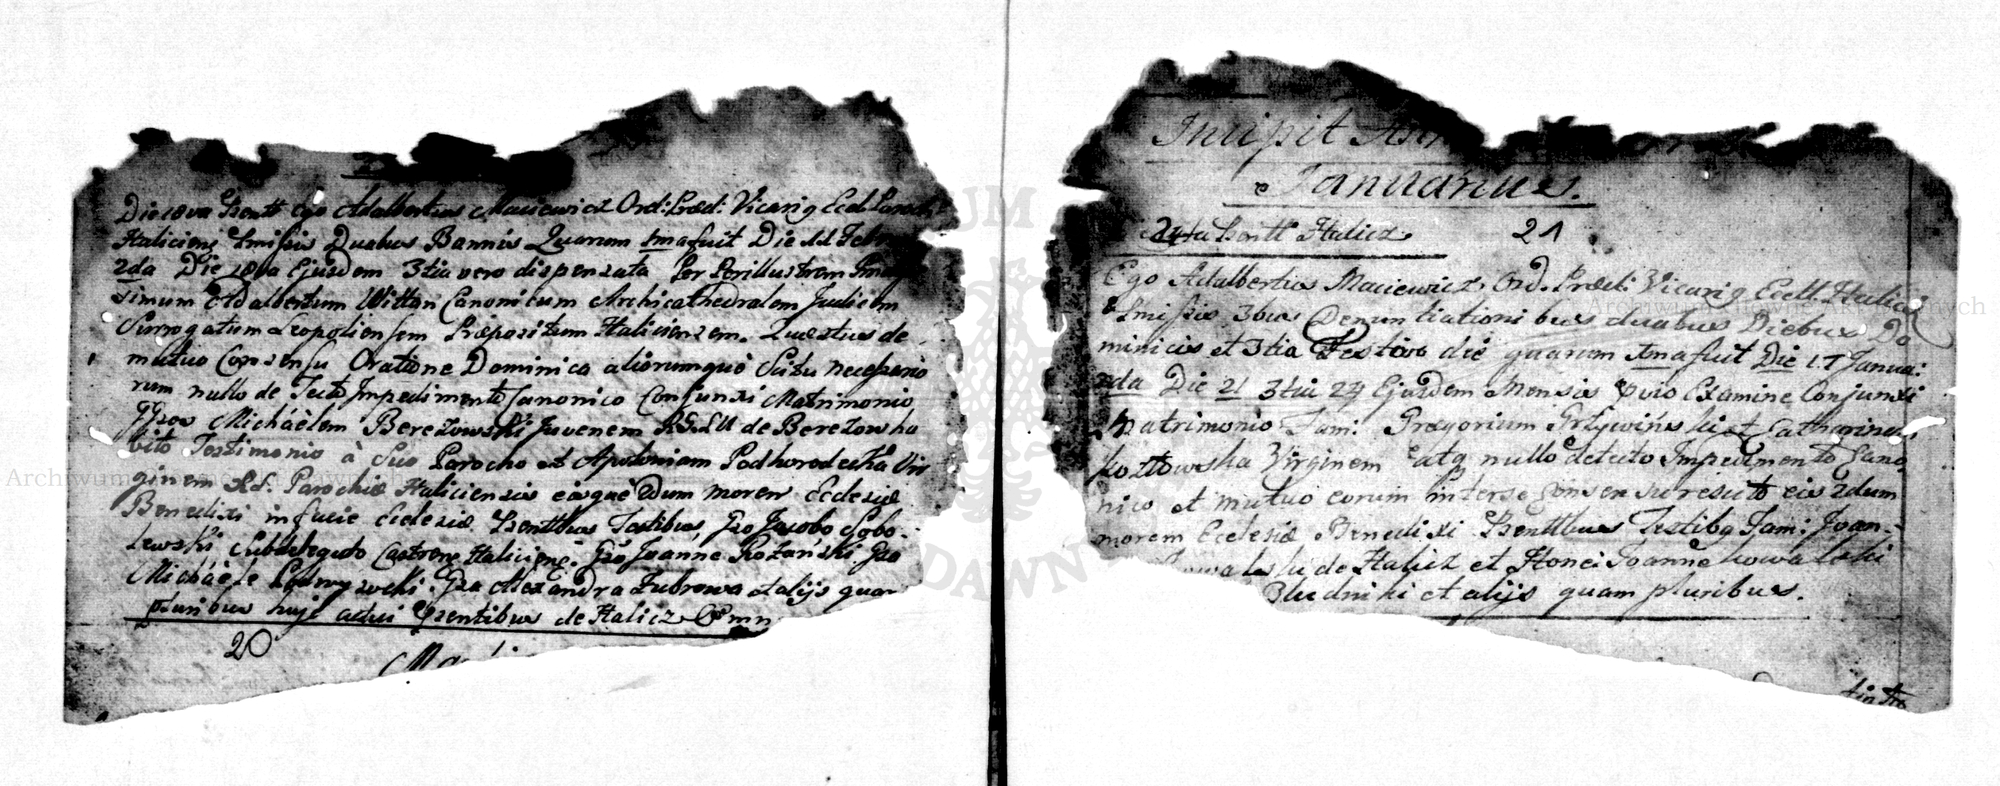 Die 18va Hsentt Ego Adalbertus Maciewicz Ord: Præd: Vicarig Eccl. Paroch
Haliciens Pmissis Duabus Bannis Quarum 1ma fuit Die 11 Febr
2da Die 18va Ejusdem 3tia vero dispensata Per Perillustrem
simum Adalbertum Witton Canonicum Archicathedralem Judicem
Surrogatum Leopoliensem Præpositum Haliciensem. Quæstus de
mutuo Consensu Oratione Dominica aliorumque Scitu necessario
rum nullo de Tecto Impedimento Canonico Conjunxi Matrimonio
Michàëlem Berezowski Juvenem de Berezowka
bito Testimonio à Suo Parocho et Apoloniam Podhorodecka Vir
ginem Parochiæ Haliciensis eosque 2dum morem Eclesiæ
Benedixi in facie Eclesiæ Testibus, Gso Jacobo Sobo
lewski Subdelegato Castrens Haliciens: Gso Joanne Rozański Gso
Michàële Gsa Alexandra Zubrowa et alijs quam
pluribus hujg actui Psentibus de Halicz
20
Incipit
Januarius.
24ta Halicz 21
Ego Adalbertus Maciewicz Ord. Prædi Vicarig Eccll. Halici
Pmissis 3bus Denuntiationibus duabus Diebus Do
minicis et 3tia Festivo die quarum 1ma fuit Die 17 Janua:
2da Die 21 3tia 24 Ejusdem Mensis Pvio Examine Conjunxi
Matrimonio Fam: Gregorium Grzywiński et Catharinam
Kozłowska Virginem atq nullo detecto Impedimento Cano
nico et mutuo eorum inter se Consensu rescito eis 2dum
morem Eclesiæ Benedixi Testibg Fam: Joan
Kowalski de Halicz et Honei Joanne Kowalski
Bludniki et alijs quam pluribus.